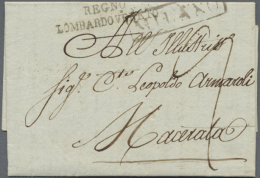 REGNO
LOMBARDO VENETO
MILANO
All Illustris
Sig.r Cte Leopoldo Armaroli
Macerata